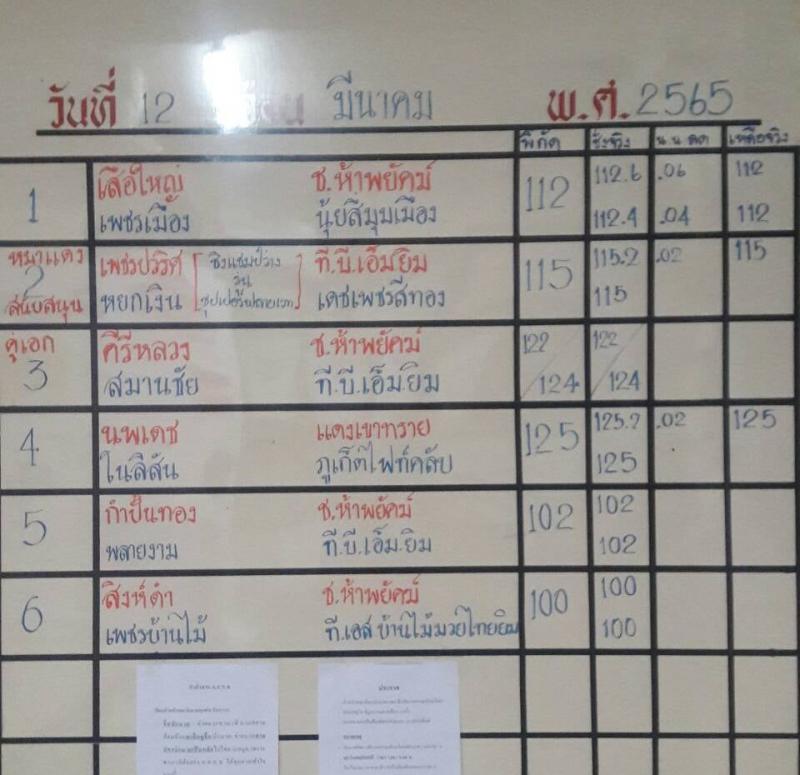 วันที่ 12 มีนาคม พ.ศ. 2565
พิกัด ชั่งจริง น.น.ลด เหลือจริง
1 เสือใหญ่ ช.ห้าพยัคฆ์ 112 112.6 .06 112
เพชรเมือง นุ้ยสี่มุมเมือง 112.4 .04 112
หมาแดง เพชรปวริศ ชิงแชมป์ว่าง ที.บี.เอ็มยิม 115 115.2 .02 115
2 รุ่น
สนับสนุน หยกเงิน ซุปเปอร์ฟลายเวท เดชเพชรสีทอง 115
คู่เอก คีรีหลวง ช.ห้าพยัคฆ์ 122 122
3 สมานชัย ที.บี.เอ็มยิม /124 /124
4 นพเดช แดงเขาทราย 125 125.2 .02 125
ไนลีสัน ภูเก็ตไฟท์คลับ 125
5 กำปั่นทอง ช.ห้าพยัคฆ์ 102 102
พลายงาม ที.บี.เอ็ม.ยิม 102
6 สิงห์ดำ ช.ห้าพยัคฆ์ 100 100
เพชรบ้านไม้ ที.เอส บ้านไม้มวยไทยยิม 100